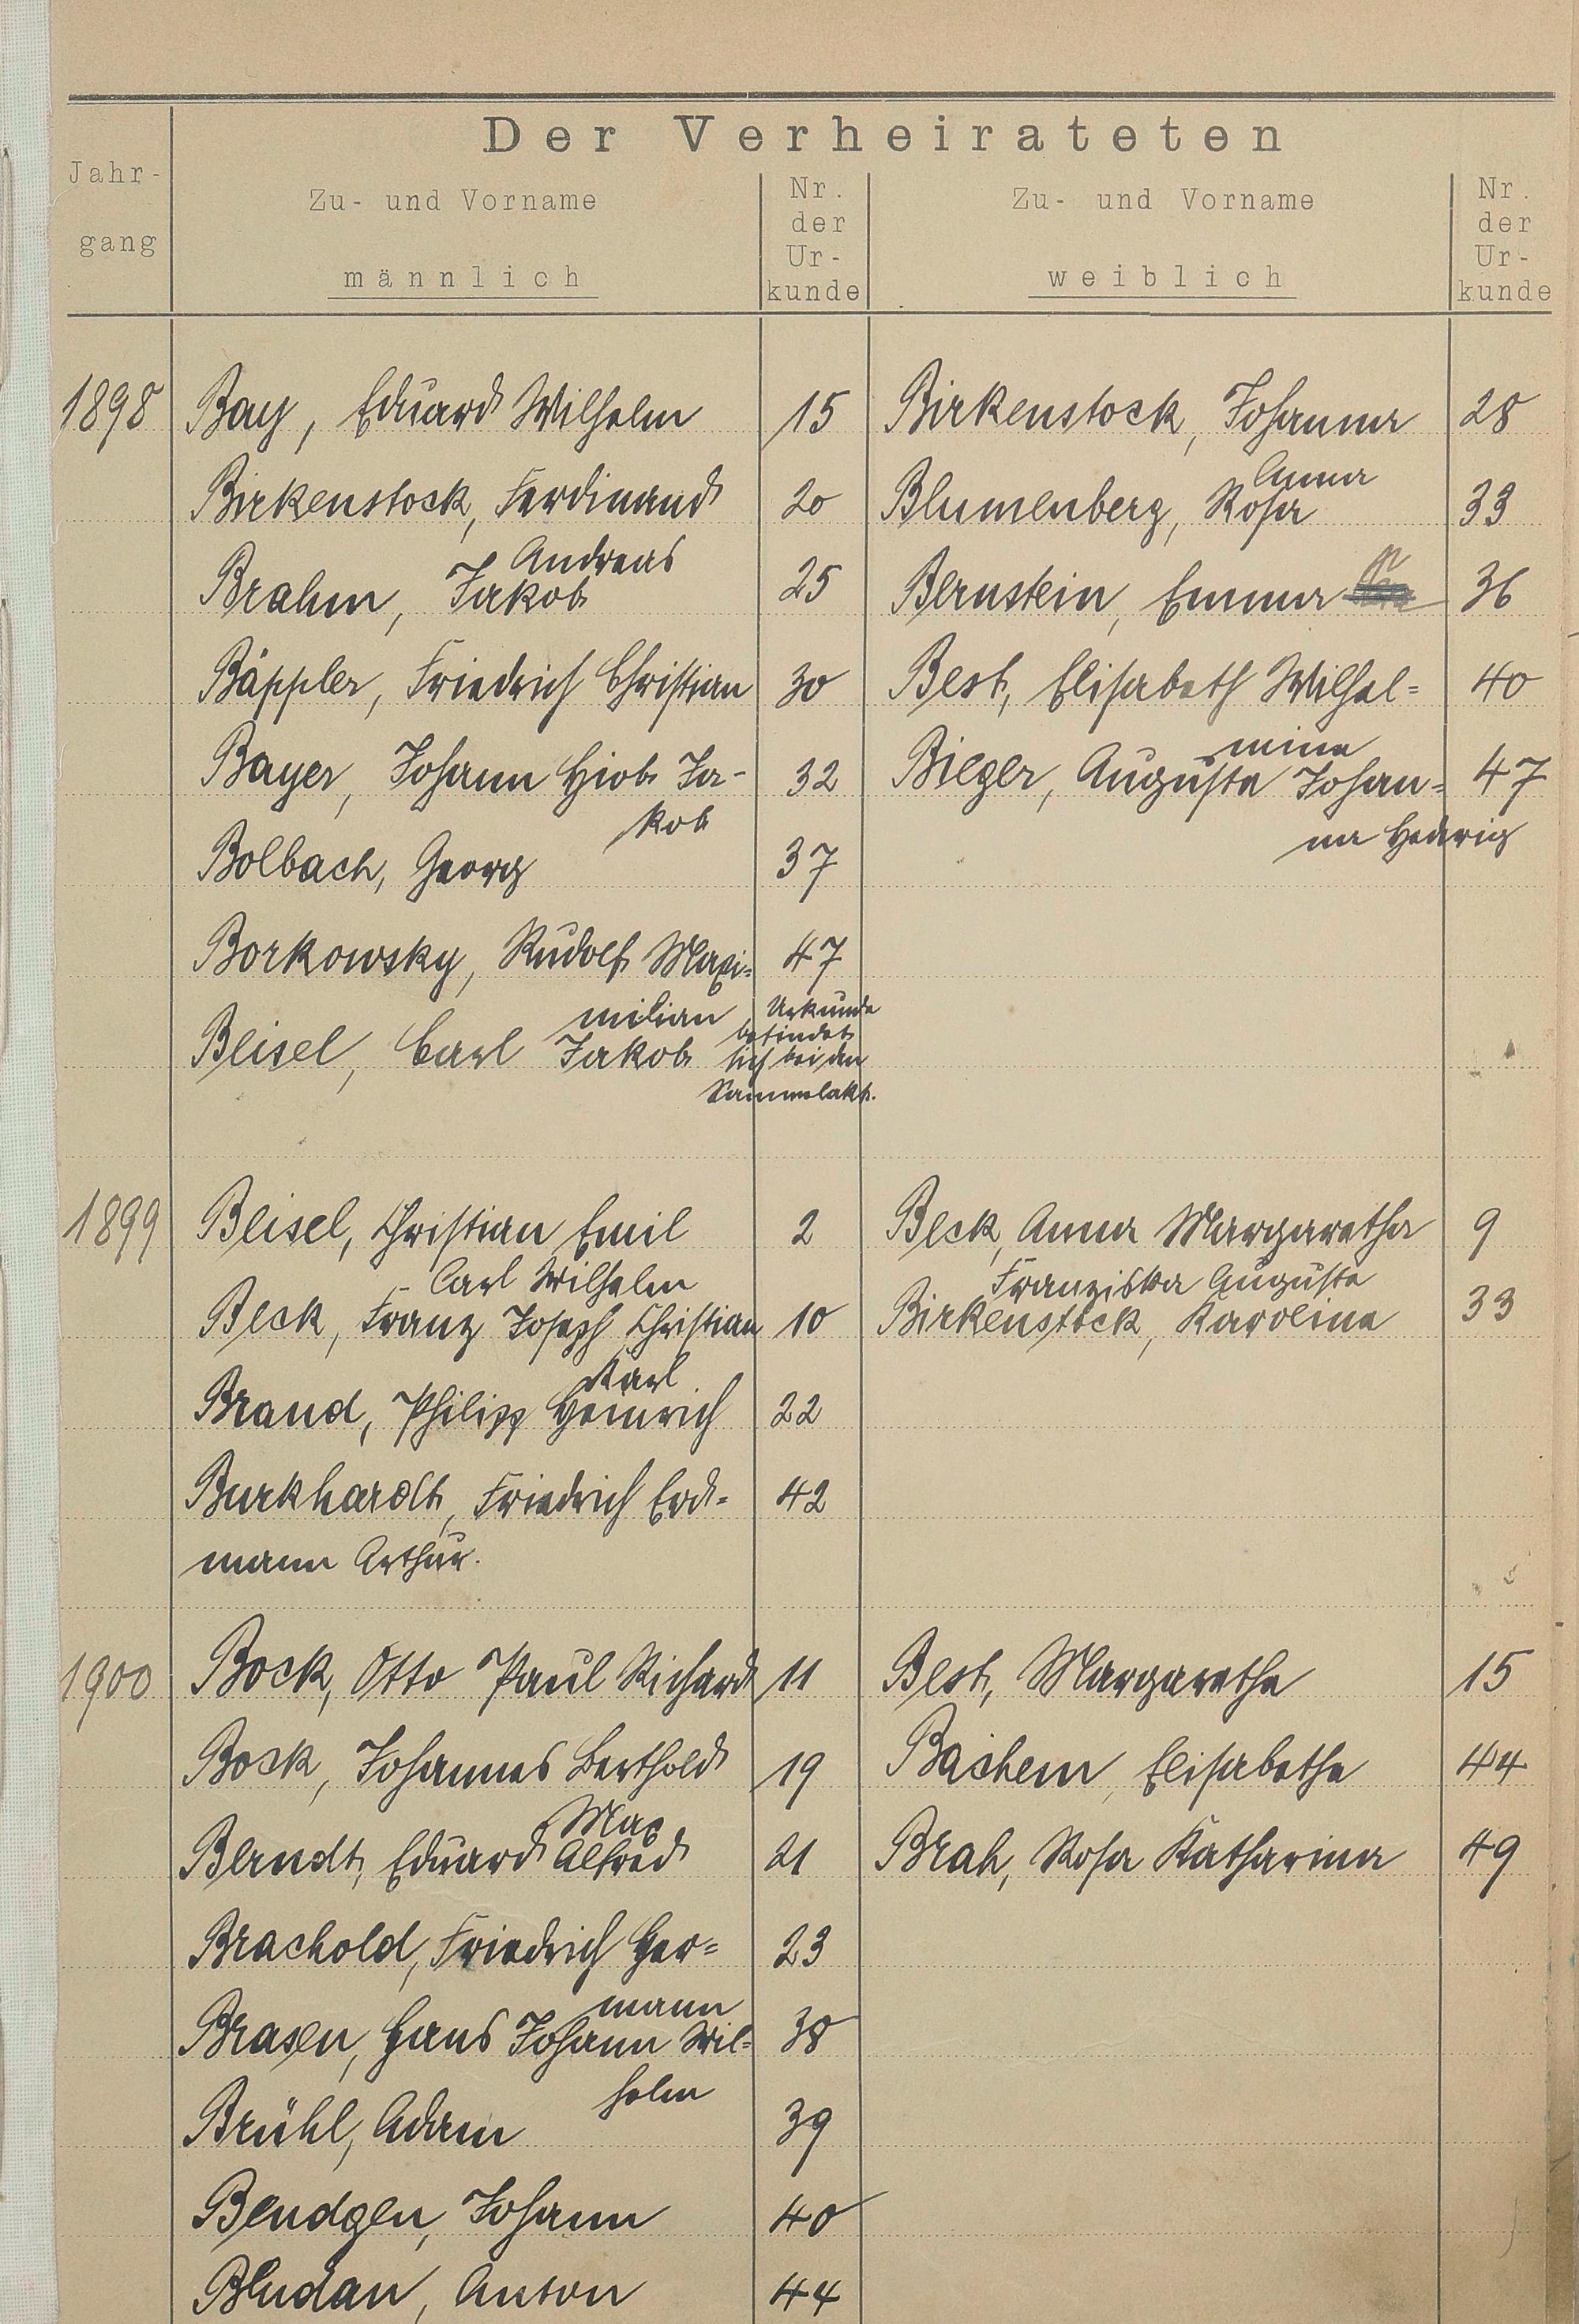 Der Verheirateten
Jahr-
gang
Zu- und Vorname
männlich
Nr.
der
Ur-
kunde
Zu- und Vorname
weiblich
Nr.
der
Ur-
kunde
1898 Bay, Eduard Wilhelm 15 Birkenstock, Johanna 28
Anna
Birkenstock, Ferdinand 20 Blumenberg, Rosa 33
Andreas
Brahm, Jakob 25 Bernstein, Emma 36
Bäppler, Friedrich Christian 30 Best, Elisabeth Wilhel= 40
mine
Bayer, Johann Hiob Ja- 32 Bieger, Auguste Johan= 47
kob
na Hedwig
Bolbach, Georg 37
Borkowsky, Rudolf Maxi= 47
milian
Urkunde
befindet
Beisel, Carl Jakob sich bei den
Sammelakt.
1899 Beisel, Christian Emil 2 Beck, Anna Margaretha 9
Carl Wilhelm
Franziska Auguste
Beck, Franz Joseph Christian 10 Birkenstock, Karoline 33
Karl
Brand, Philipp Heinrich 22
Burkhardt, Friedrich Erd= 42
mann Arthur.
1900 Bock, Otto Paul Richard 11 Best, Margarethe 15
Bock, Johannes Berthold 19 Bachem, Elisabethe 44
Max
Berndt, Eduard Alfred 21 Brah, Rosa Katharina 49
Brachold, Friedrich Her= 23
mann
Brasen, Hans Johann Wil= 38
helm
Brühl, Adam 39
Bendgen, Johann 40
Bludau, Anton 44